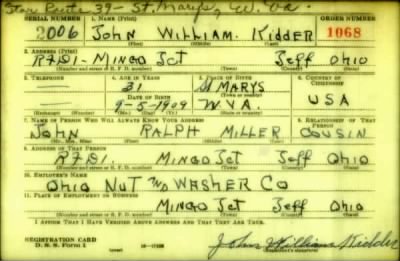 Star Route 39 - St. Marys, W. Va.
SERIAL NUMBER 1. NAME (Print) ORDER NUMBER
2006 John William. Kidder 1068
(First) (Middle) (Last)
2. ADDRESS (Print)
R7D1- Mingo Jct Jeff Ohio
(Number and street or R. F. D. number) (Town) (County) (State)
3. TELEPHONE 4. AGE IN YEARS 5. PLACE OF BIRTH 6. COUNTRY OF CITIZENSHIP
— 31 St MARYS
DATE OF BIRTH (Town or county)
9-5-1909 W.VA. USA
(Exchange) (Number) (Mo.) (Day) (Yr.) (State or country)
7. NAME OF PERSON WHO WILL ALWAYS KNOW YOUR ADDRESS 8. RELATIONSHIP OF THAT PERSON
John RALPH MILLER COUSIN
(First) (Middle) (Last)
9. ADDRESS OF THAT PERSON
R7D1. Mingo Jct Jeff Ohio
(Number and street or R. F. D. number) (Town) (County) (State)
10. EMPLOYER'S NAME
Ohio NUT WASHER Co
11. PLACE OF EMPLOYMENT OR BUSINESS
Mingo Jct Jeff Ohio
(Number and street or R. F. D. number) (Town) (County) (State)
I AFFIRM THAT I HAVE VERIFIED ABOVE ANSWERS AND THAT THEY ARE TRUE.
REGISTRATION CARD
D. S. S. Form 1 (over) John William Kidder